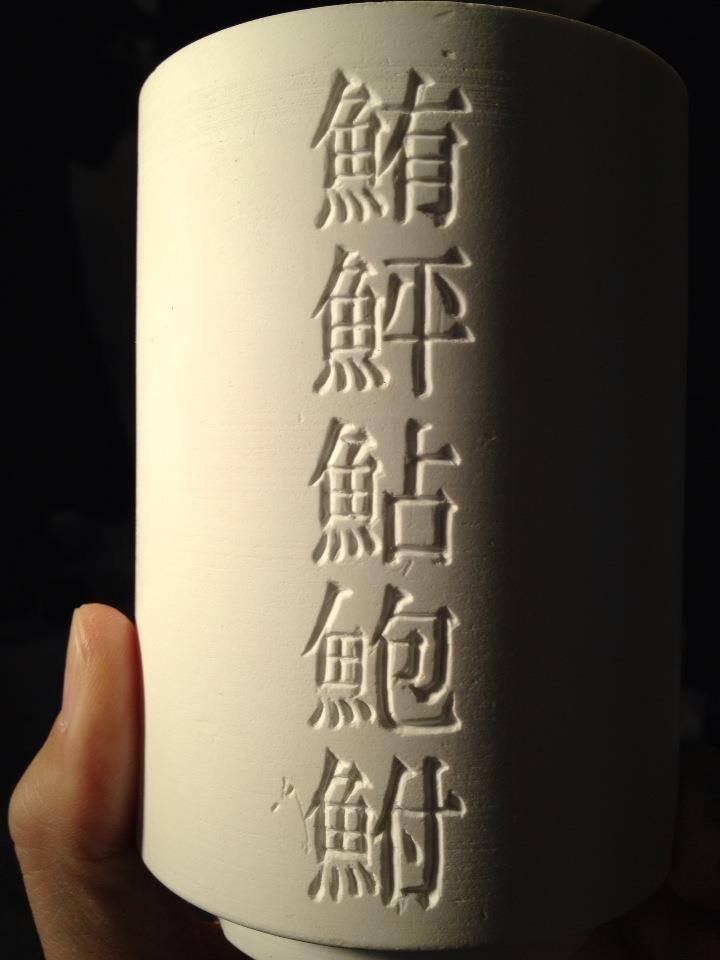 鮪鮃鮎鮑鮒